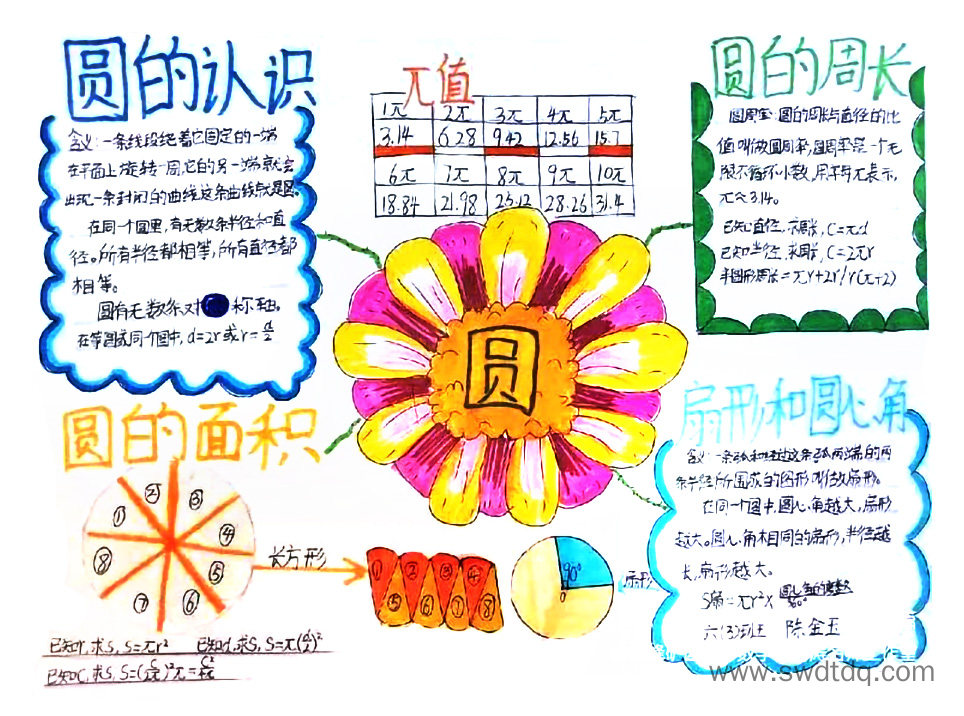 圆的认识
含义:一条线段绕着它固定的一端
在平面上旋转一周,它的另一端就会
出现一条封闭的曲线这条曲线就是圆。
在同一个圆里,有无数条半径和直
径。所有半径都相等,所有直径都
相等。
圆有无数条对 称轴。
在等圆或同一个圆中,d=2r或r=d/2
π值
1π 2π 3π 4π 5π
3.14 6.28 9.42 12.56 15.7
6π 7π 8π 9π 10π
18.84 21.98 25.12 28.26 31.4
圆的周长
圆周率:圆的周长与直径的比
值叫做圆周率,圆周率是一个无
限不循环小数,用字母π表示,
π≈3.14。
已知直径,求周长,C=πd
已知半径,求周长,C=2πr
半圆形周长=πr+2r/r(π+2)
圆
圆的面积
① ② ③ ④ ⑤ ⑥ ⑦ ⑧
长方形
① ② ③ ④
⑤ ⑥ ⑦ ⑧
90°
0
扇形
已知r,求S,S=πr² 已知d,求S,S=π(d/2)²
已知C,求S,S=(C/2π)²π=C²/4π
扇形和圆心角
含义:一条弧和经过这条弧两端的两
条半径所围成的图形叫做扇形。
在同一个圆中,圆心角越大,扇形
越大。圆心角相同的扇形,半径越
长,扇形越大。
S扇=πr²×圆心角的度数/360°
六(3)班 陈金玉
www.swdtdq.com